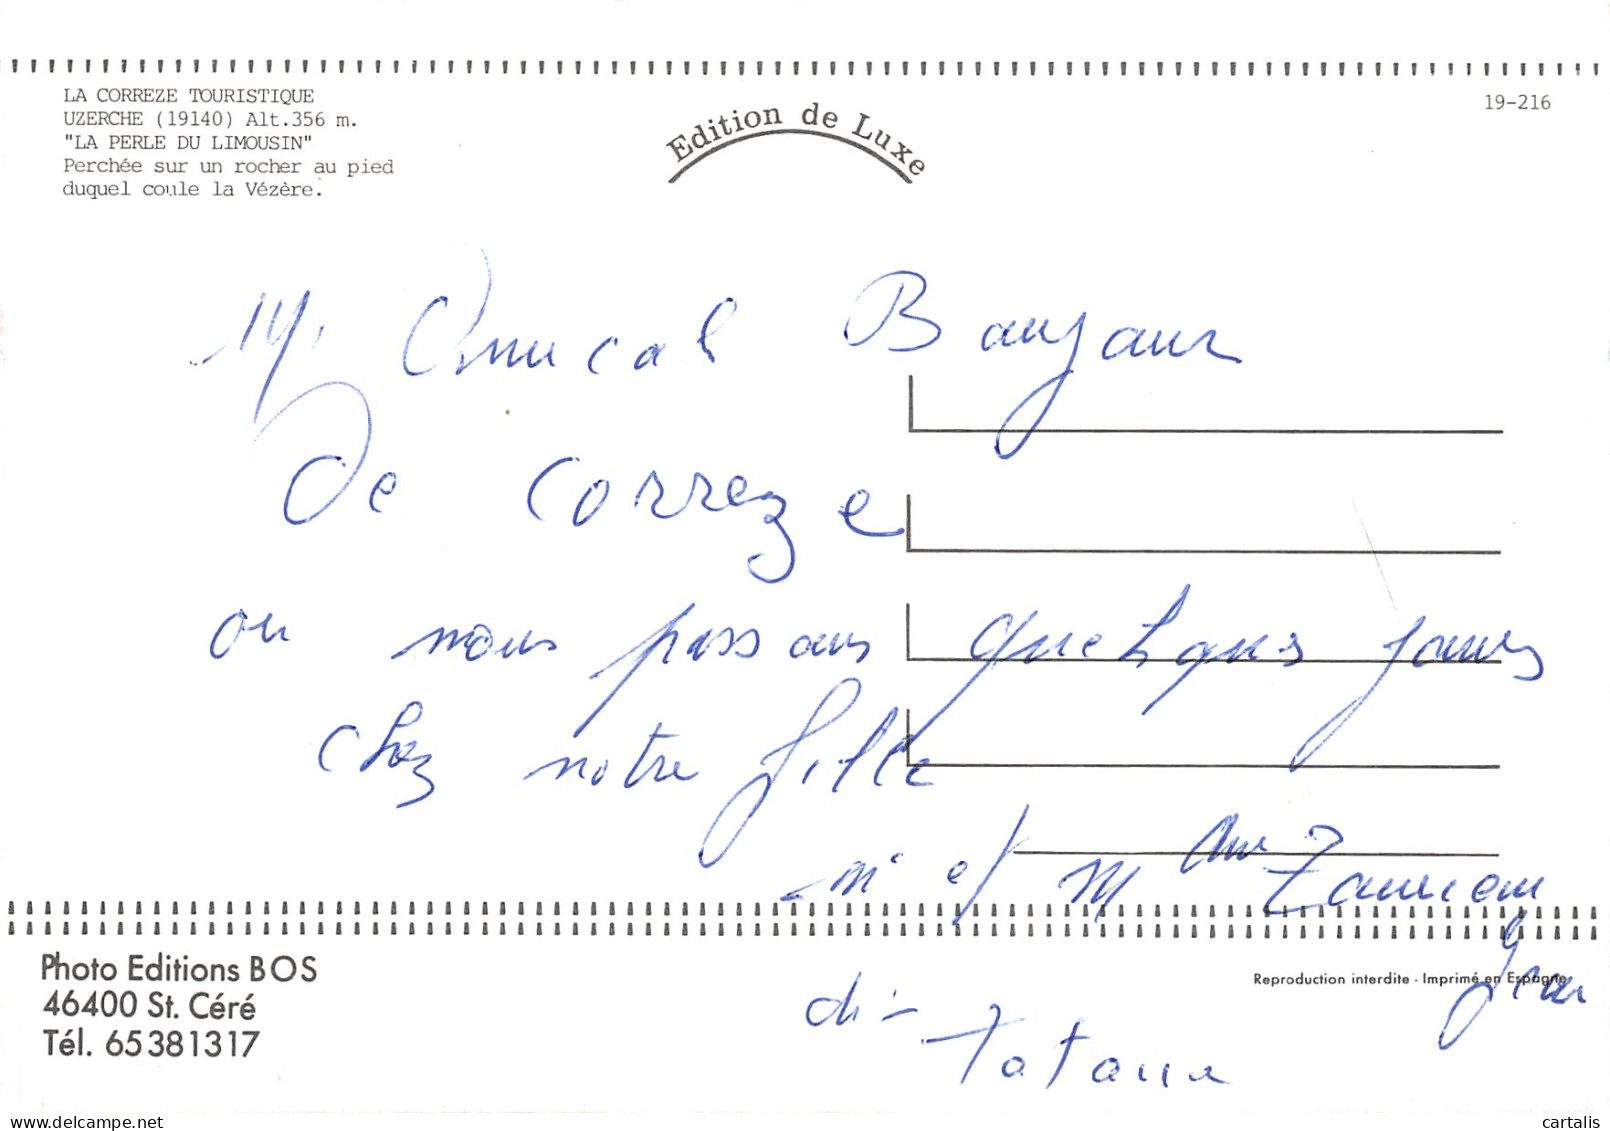 LA CORREZE TOURISTIQUE
UZERCHE (19140) Alt.356 m.
"LA PERLE DU LIMOUSIN"
Perchée sur un rocher au pied
duquel coule la Vézère.
Edition de Luxe
19-216
Amical
De Correze
ou nous passons quelques jours
chez notre fille
m et M
di - Tatana
Photo Editions BOS
46400 St. Céré
Tél. 65381317
Reproduction interdite - Imprimé en Espagne
delcampe.net
cartalis